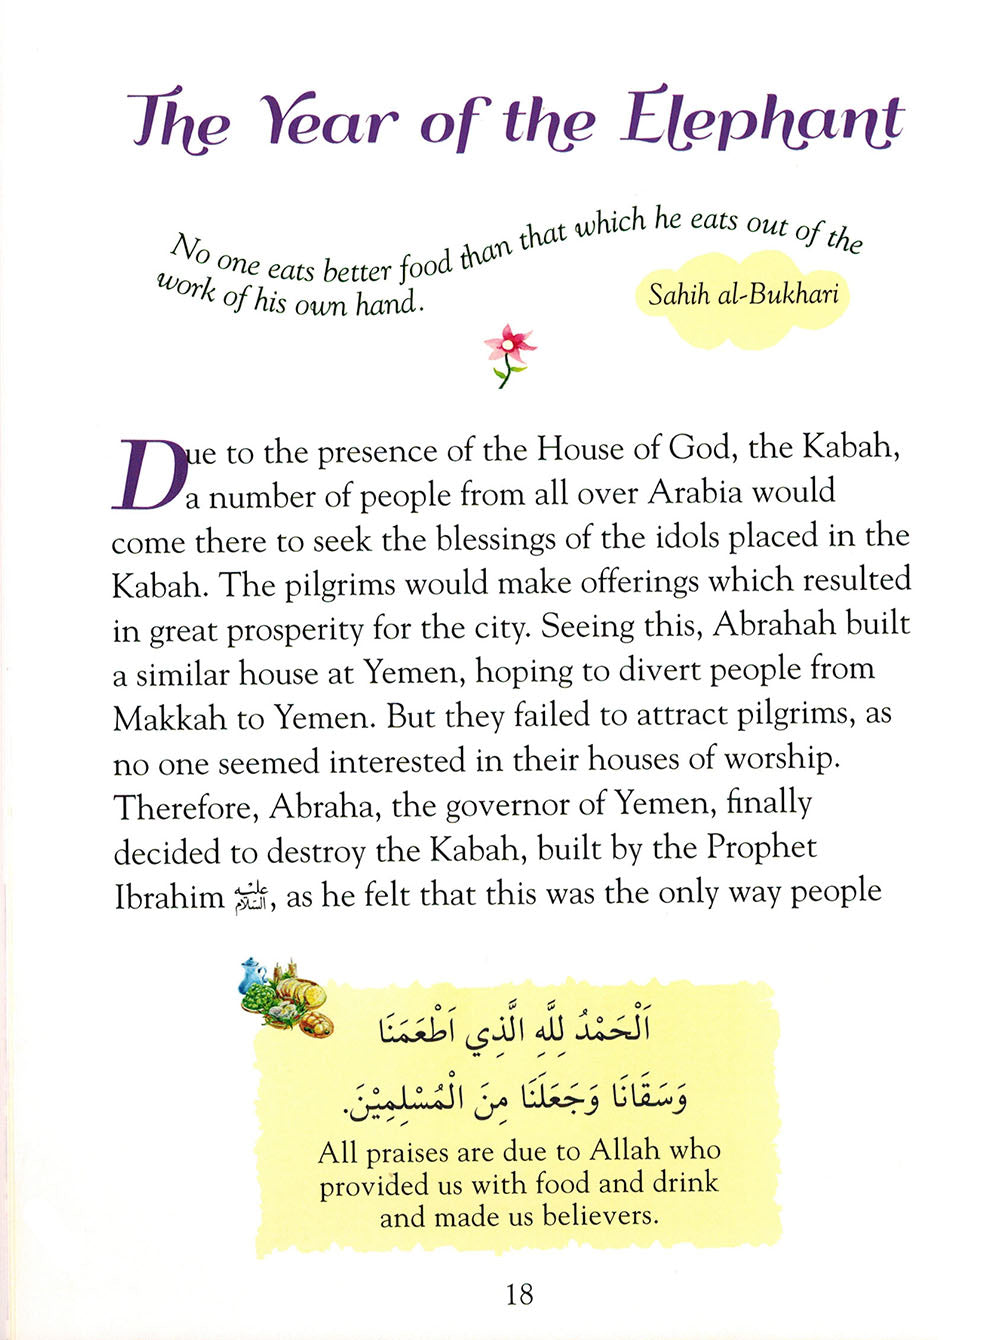 The Year of the Elephant
No one eats better food than that which he eats out of the
work of his own hand.
Sahih al-Bukhari
Due to the presence of the House of God, the Kabah,
a number of people from all over Arabia would
come there to seek the blessings of the idols placed in the
Kabah. The pilgrims would make offerings which resulted
in great prosperity for the city. Seeing this, Abrahah built
a similar house at Yemen, hoping to divert people from
Makkah to Yemen. But they failed to attract pilgrims, as
no one seemed interested in their houses of worship.
Therefore, Abraha, the governor of Yemen, finally
decided to destroy the Kabah, built by the Prophet
Ibrahim عليه السلام, as he felt that this was the only way people
اَلْحَمْدُ لِلَّهِ الَّذِي اَطْعَمَنَا
وَسَقَانَا وَجَعَلَنَا مِنَ الْمُسْلِمِيْنَ.
All praises are due to Allah who
provided us with food and drink
and made us believers.
18